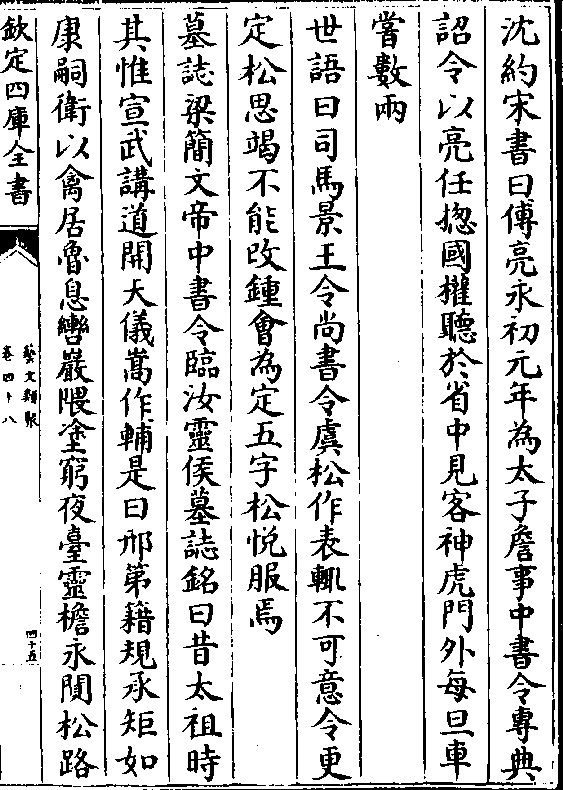 沈約宋書曰傅亮永初元年為太子詹事中書令專典
詔令以亮任揔國權聽於省中見客神虎門外每旦車
嘗數兩
世語曰司馬景王令尚書令虞松作表輒不可意令更
定松思竭不能改鍾會為定五字松悅服焉
墓誌梁簡文帝中書令臨汝靈侯墓誌銘曰昔太祖時
其惟宣武講道開天儀嵩作輔是曰邢第籍規承矩如
康嗣衛以禽居魯息轡巖隈塗窮夜臺靈檐永閴松路
欽定四庫全書
藝文類聚
卷四十八
四十五